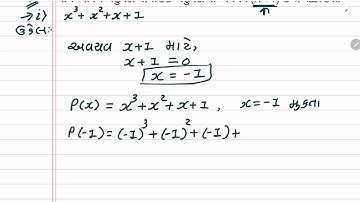 → i) x³ + x² + x + 1
ઉકેલ:
અવયવ x + 1 માટે,
x + 1 = 0
x = -1
P(x) = x³ + x² + x + 1, x = -1 મૂકતા
P(-1) = (-1)³ + (-1)² + (-1) +